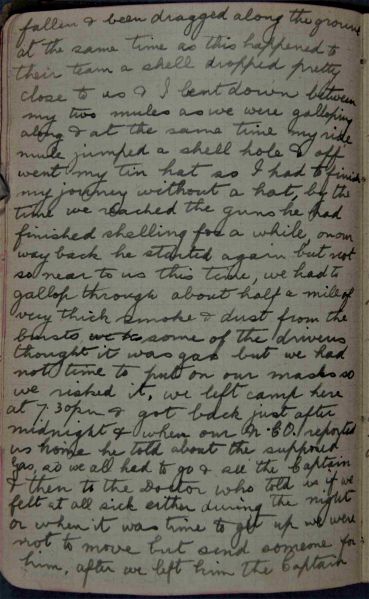 fallen & been dragged along the ground
at the same time as this happened to
their team a shell dropped pretty
close to us & I bent down between
my two mules as we were galloping
along & at the same time my ride
mule jumped a shell hole & off
went my tin hat so I had to finish
my journey without a hat, by the
time we reached the guns he had
finished shelling for a while, on our
way back he started again but not
so near to us this time, we had to
gallop through about half a mile of
very thick smoke & dust from the
bursts some of the drivers
thought it was gas but we had
not time to put on our masks so
we risked it, we left camp here
at 7.30pm & got back just after
midnight & when our N.C.O. reported
us home he told about the supposed
Gas, so we all had to go & see the Captain
& then to the Doctor who told us if we
felt at all sick either during the night
or when it was time to get up we were
not to move but send someone for
him, after we left him the Captain